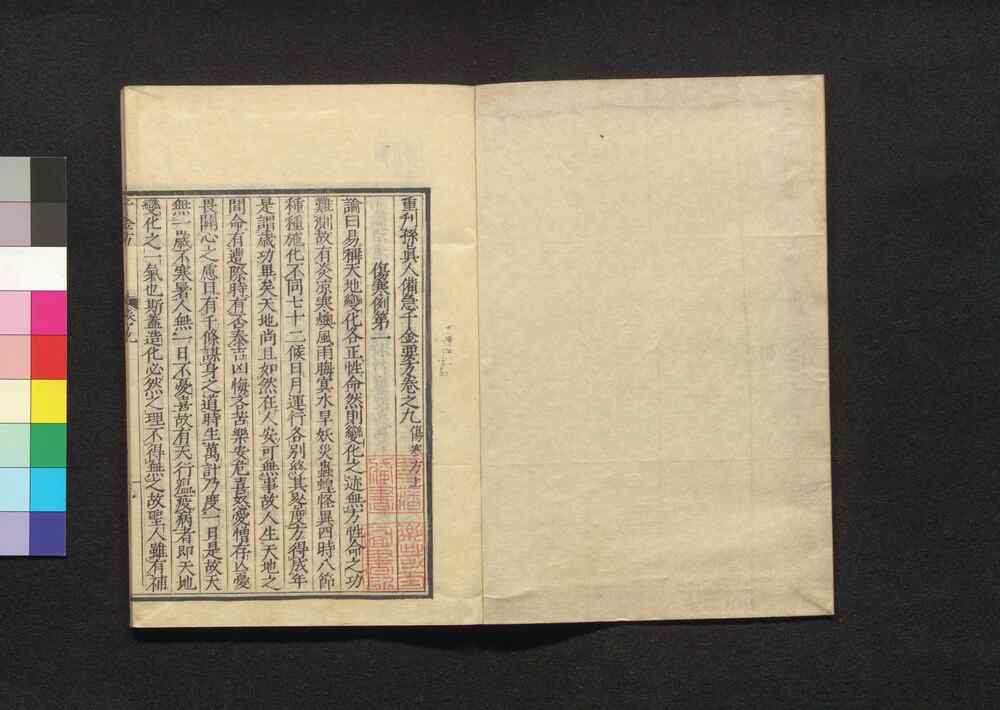 重刊孫眞人備急千金要方卷之九 傷寒方上
傷寒例第一
論曰易稱天地變化各正性命然則變化之迹無方性命之功
難測故有炎凉寒燠風雨晦冥水旱妖災蟲蝗怪異四時八節
種種施化不同七十二候日月運行各別終其晷度方得成年
是謂歲功畢矣天地尚且如然在人安可無事故人生天地之
間命有遭際時有否泰吉凶悔吝苦樂安危喜怒愛憎存亡憂
畏關心之慮日有千條謀身之道時生萬計乃度一日是故天
無一歲不寒暑人無一日不憂喜故有天行瘟疫病者即天地
變化之一氣也斯蓋造化必然之理不得無之故聖人雖有補
千金方 卷之九